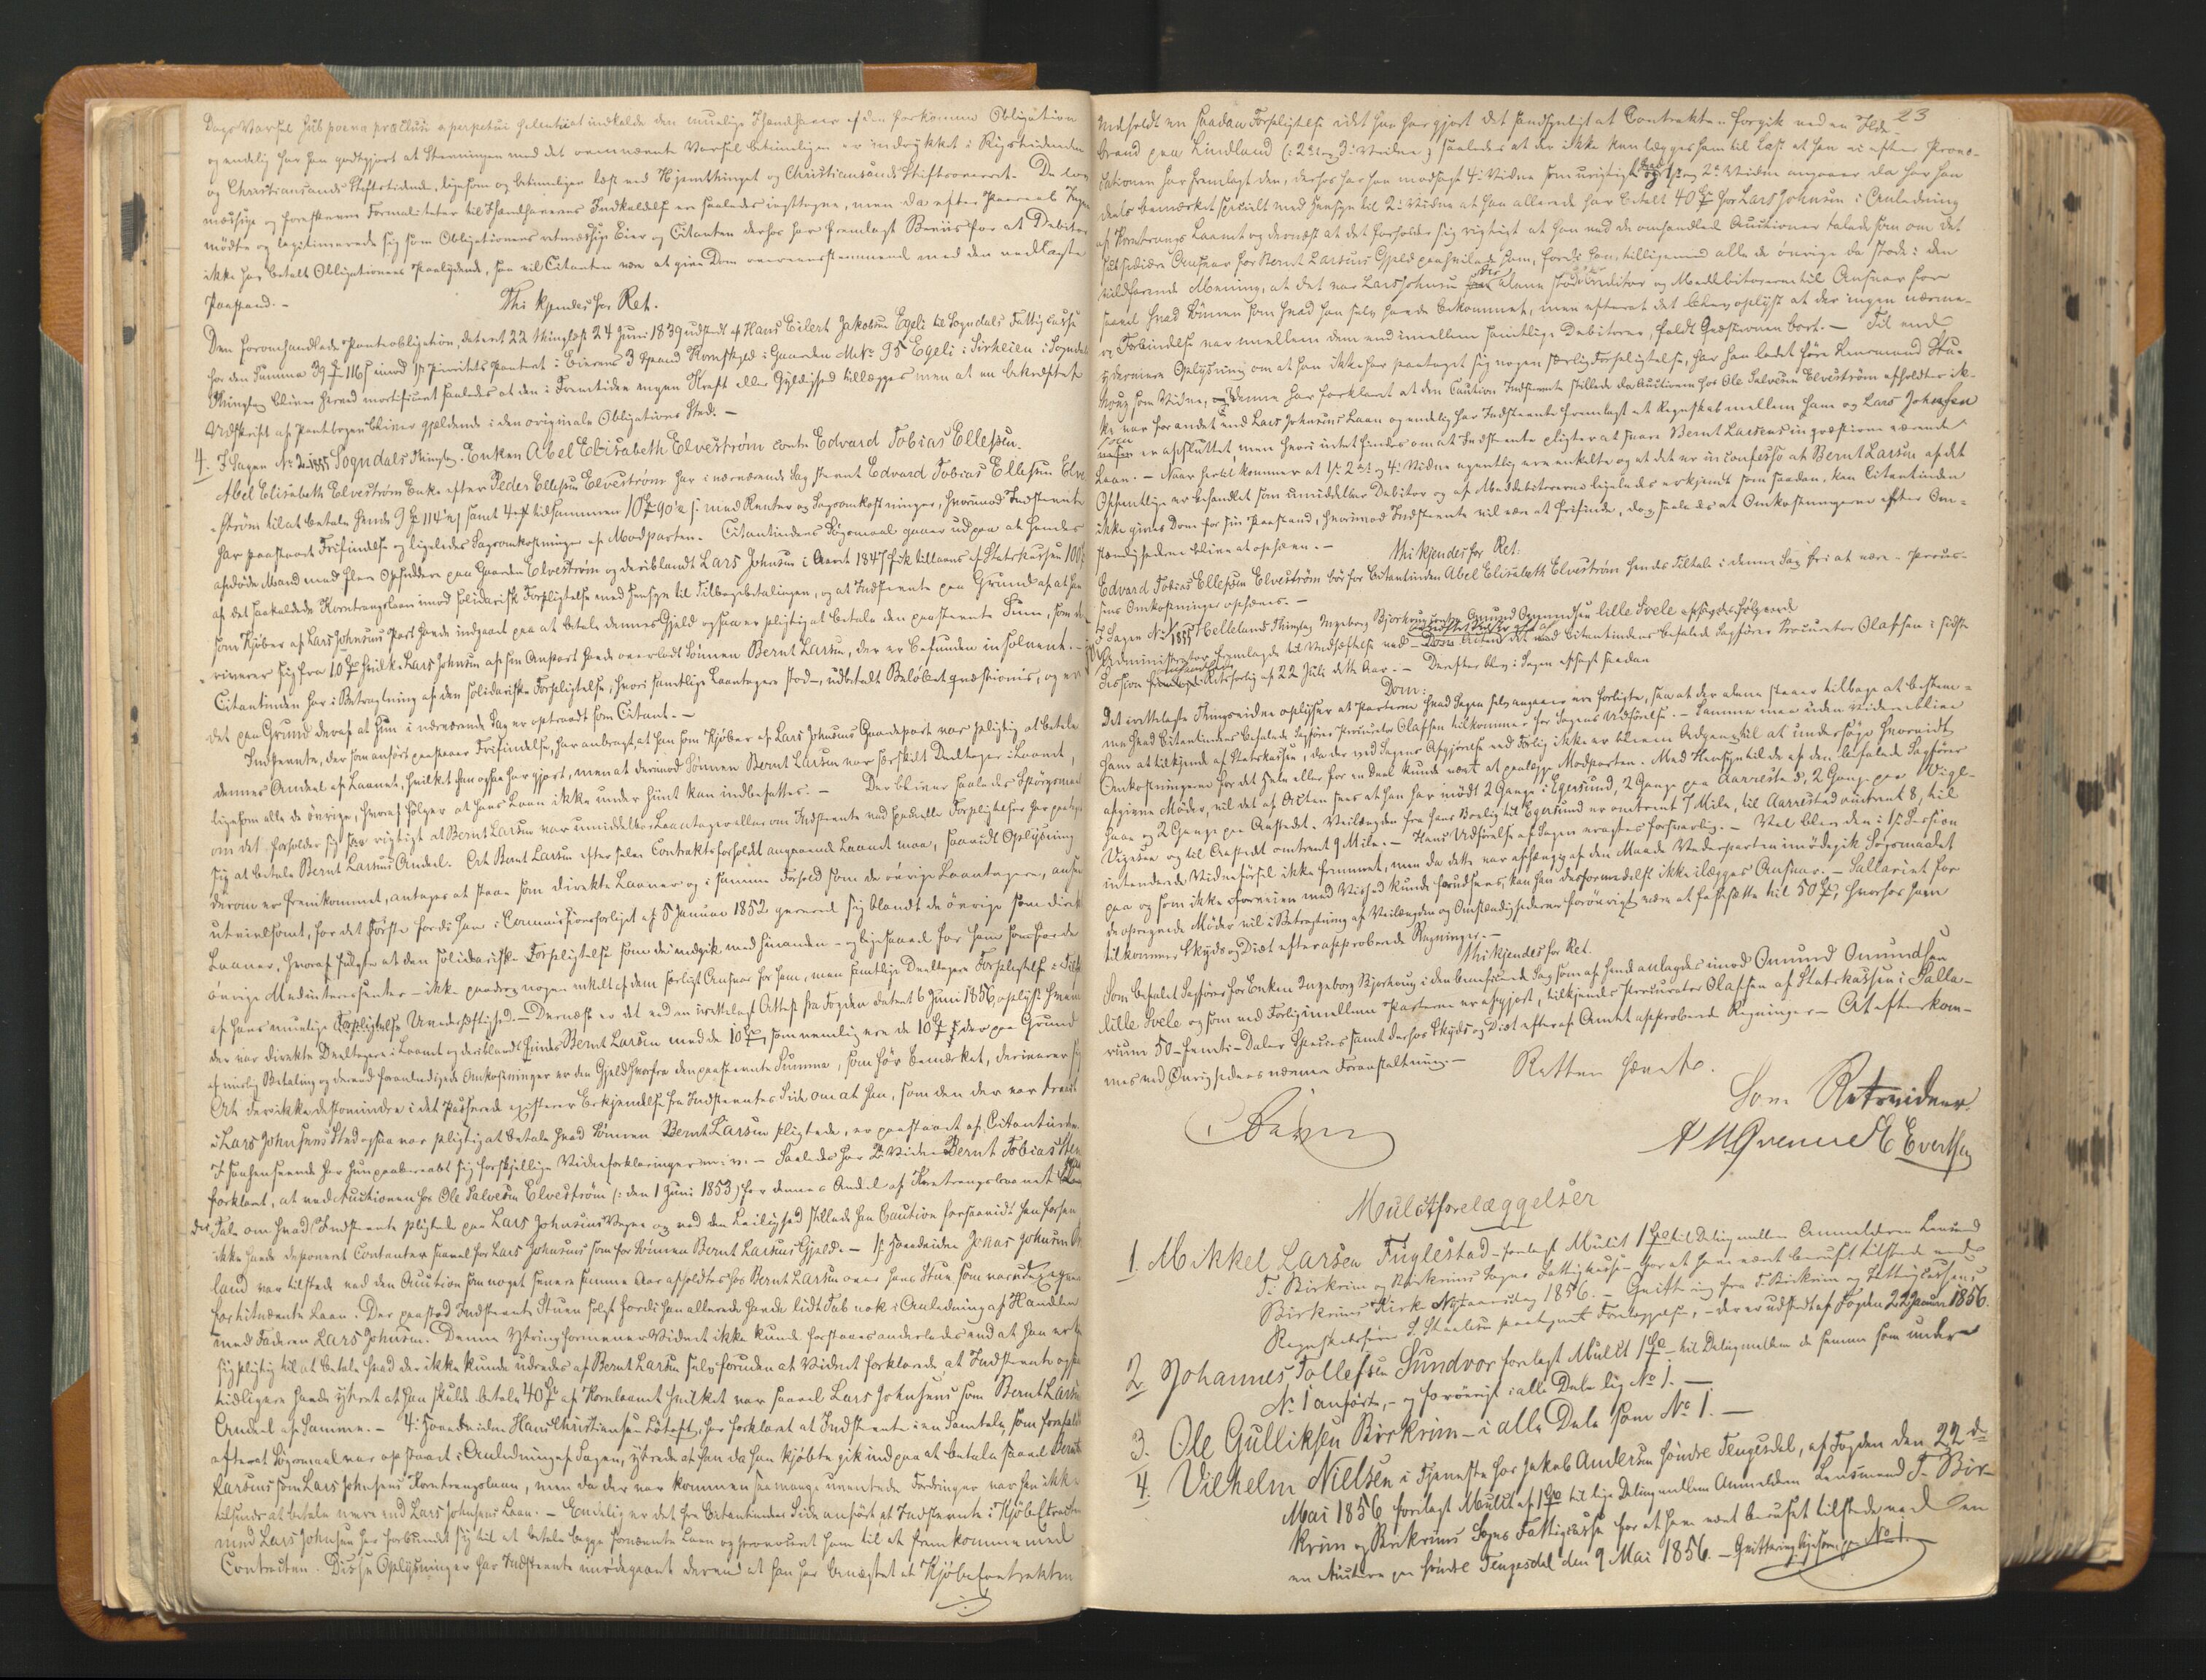 Dags Varsel sub poena præclusi & perpetui silentii at indkalde den muelige Ihændehaver af den forkomne Obligation
og endelig har han godtgjort at Stevningen med det ovennævnte Varsel betimeligen er indrykket i Rigstidende
og Christiansands Stiftstidende, ligesom og betimeligen læst ved Hjemthinget og Christiansands Stiftsoverret. De lov-
mæssige og foreskrevne Formaliteter til Ihændehaverens Indkaldelse ere saaledes iagttagne, men da efter Paaraab Ingen
mødte og legitimerede sig som Obligationens retmæssige Eier og Citanten derhos har fremlagt Beviis for at Debitor
ikke har betalt Obligationens Paalydende, saa vil Citanten være at give Dom overeensstemmende med den nedlagte
Paastand. -
Thi kjendes for Ret.
Den foromhandlede Panteobligation, dateret 22 thinglæst 24 Juni 1839 udstedt af Hans Eilert Jakobsen Egeli til Sogndals Fattigcasse
for den Summa 39 116 ß imod 1ste Prioritets Panteret i Eierens 3 Spand Kornskyld i Gaarden M. No 95 Egeli i Sirheien i Sogndals
Thinglag bliver herved mortificeret saaledes at den i Fremtiden ingen Kraft eller Gyldighed tillægges men at en bekræftet
Udskrift af Pantebogen bliver gjældende i den originale Obligations Sted. -
4. I Sagen No 2 1855 Sogndals Thinglag. Enken Abel Elisabeth Elveström contra Edvard Tobias Ellefsen.
Abel Elisabeth Elveström Enke efter Peder Ellefsen Elveström har i nærværende Sag stevnt Edvard Tobias Ellefsen Elve-
ström til at betale hende 9 114 ß samt tilsammen 10 90 ß med Renter og Sagsomkostninger, hvorimod Indstevnte
har paastaaet Frifindelse og ligeledes Sagsomkostninger af Modparten. Citantindens Søgsmaal gaaer ud paa at hendes
afdøde Mand med flere Opsiddere paa Gaarden Elveström og deriblandt Lars Johnsen i Aaret 1847 fik tillaans af Statskassen 100
af det saakaldede Korntrangslaan imod solidarisk Forpligtelse med Hensyn til Tilbagebetalingen, og at Indstevnte paa Grund af at han
som Kjøber af Lars Johnsens Part havde indgaaet paa at betale dennes Gjeld ogsaa er pligtig at betale den paastevnte Sum, som de-
riverer sig fra 10 hvilke Lars Johnsen af sin Anpart havde overladt Sønnen Bernt Larsen, der er befunden insolvent. -
Citantinden har i Betragtning af den solidariske Forpligtelse, hvori samtlige Laantagere stod, udbetalt Beløbet quæstionis, og er
det paa Grund deraf at hun i nærværende Sag er optraadt som Citant. -
Indstevnte, der som anført paastaaer Frifindelse, har anbragt, at han som Kjøber af Lars Johnsens Gaardepart var pligtig at betale
dennes Andeel af Laanet, hvilket han ogsaa har gjort, men at derimod Sønnen Bernt Larsen var særskilt Deeltager i Laanet,
ligesom alle de øvrige, hvoraf følger at hans Laan ikke under hiint kan indbefattes. - Der bliver saaledes Spørgsmaal
om det forholder sig saa rigtigt at Bernt Larsen var umiddelbar Laantager eller om Indstevnte ved specielle Forpligtelser har paataget
sig at betale Bernt Larsens Andeel. At Bernt Larsen efter selve Contractsforholdet angaaende Laanet maa, saavidt Oplysning
derom er fremkommet, antages at staae som direkte Laaner og i samme Forhold som de øvrige Laantagere, ansees
utvivlsomt, for det første fordi han i Commissionsforliget af 5 Januar 1852 genered sig blandt de øvrige som direkte
Laaner, hvoraf fulgte at den solidariske Forpligtelse som de indgik med hinanden - og ligesaavel for ham som for de
øvrige Medinteressenter - ikke paadrog nogen enkelt af dem særligt Ansvar for ham, men samtlige Deeltagere Forpligtelse i Tilfælde
af hans muelige Forpligtelse Uvederhæftighed. - Dernæst er det ved en irettelagt Attest fra Fogden dateret 6 Juni 1856 oplyst hvem
der var direkte Deeltagere i Laanet og deriblandt findes Bernt Larsen med de 10 som nemlig ere de 10 der paa Grund
af muelig Betaling og derved foranledigede Omkostninger er den Gjeld hvorfra den paastevnte Summa, som før bemærket, deriverer sig
At der ikke destomindre i det Passerede existerer Erkjendelse fra Indstevntes Side om at han, som den der var traadt
i Lars Johnsens Sted ogsaa var pligtig at betale hvad Sønnen Bernt Larsen pligtede, er paastaaet af Citantinden.
I saa Henseende har hun paaberaabt sig forskjellige Vidneforklaringer m. v. - Saaledes har 2det Vidne Bernt Tobias
forklaret, at ved Auctionen hos Ole Salvesen Elveström (: den 1 Juni 1853) for dennes Andel af Korntrangslaanet blev
der Tale om hvad Indstevnte pligtede paa Lars Johnsens Vegne og ved den Leilighed stillede han Caution forsaavidt han forsaavidt
ikke havde deponeret Contanter saavel for Lars Johnsens som for Sønnen Bernt Larsens Gjeld. - 1ste Hovedvidne Jonas Johnsen
land var tilstede ved den Auction som noget senere samme Aar afholdtes hos Bernt Larsen over hans Stue som var udlagt
for bemeldte Laan. Der paastod Indstevnte Stuen solgt fordi han allerede havde lidt Tab nok i Anledning af Handelen
med Faderen Lars Johnsen. Denne Ytring formener Vidnet ikke kunde forstaaes anderledes end at han erkjendte
sig pligtig til at betale hvad der ikke kunde udredes af Bernt Larsen selv foruden at Vidnet forklarede at Indstevnte ogsaa
tidligere havde ytret at han skulde betale 40 af Kornlaanet hvilket var saavel Lars Johnsens som Bernt Larsens
Andeel af Samme. - 4de Hovedvidne Hans Christiansen har forklaret at Indstevnte i en Samtale, som forefaldt
efterat Søgsmaal var opstaaet i Anledning af Sagen, ytrede at han da han kjøbte gik ind paa at betale saavel Bernt
Larsens som Lars Johnsens Korntrangslaan, men da der var kommen saa mange uventede Fordringer var han ikke
tilsinds at betale mere end Lars Johnsens Laan. - Endelig er det fra Citantindens Side anført at Indstevnte i Kjøbecontracten
med Lars Johnsen har forbundet sig til at betale begge fornævnte Laan og provoceret ham til at fremkomme med
Contracten. Disse Oplysninger har Indstevnte imødegaaet derved at han har benægtet at Kjøbecontrakten
23
indholdt en saadan Forpligtelse idet han har gjort det sandsynligt at Contrakten forgik ved en Ilde-
brand paa Lindland (: 2det og 3die Vidne) saaledes at der ikke kan lægges ham til Last at han ei efter Provo-
cationen har fremlagt den, derhos har han modsagt 4de Vidne som urigtigt og hvad 1ste og 2det Vidne angaaer da har han
deels bemærket specielt med Hensyn til 2det Vidne at han allerede har betalt 40 for Lars Johnsen i Anledning
af Korntrangs Laanet og dernæst at det forholder sig rigtigt at han ved de omhandlede Auctioner talede som om det
subsidiære Ansvar for Bernt Larsens Gjeld paahvilede ham, fordi han, tilligemed alle de øvrige da stode i den
vildfarende Mening, at det var Lars Johnsen der alene stod Creditor og Meddebitorerne til Ansvar for
saavel hvad Sønnen som hvad han selv havde bekommet, men efterat det blev oplyst at der ingen nærme-
re Forbindelse var mellem dem end imellem samtlige Debitorer, faldt Qvæstionen bort. - Til end
ydermere Oplysning om at han ikke har paataget sig nogen særlig Forpligtelse, har han ladet føre Lensmand Stu-
houg som Vidne, og Denne har forklaret at den Caution Indstevnte stillede da Auctionen hos Ole Salvesen Elveström afholdtes ik-
ke var for andet end Lars Johnsens Laan og endelig har Indstevnte fremlagt et Regnskab mellem ham og Lars Johnsen
som er afsluttet, men hvori intet findes om at Indstevnte pligter at svare Bernt Larsens in qvæstione værende
Laan. - Naar hertil kommer at 1ste 2det og 4de Vidne egentlig ere enkelte og at det er in confesso at Bernt Larsen af det
Offentlige er behandlet som umiddelbar Debitor og af Meddebitorerne ligeledes erkjendt som saadan, kan Citantinden
ikke gives Dom for sin Paastand, hvorimod Indstevnte vil være at frifinde, dog saaledes at Omkostningerne efter Om-
stændighederne blive at ophæve. -
Thi kjendes for Ret:
Edvard Tobias Ellefsen Elveström bør for Citantinden Abel Elisabeth Elveström hendes Tiltale i denne Sag fri at være. Proces-
sens Omkostninger ophæves. -
I Sagen No 1/1855 Hetlelands Thinglag Ingeborg Bjørkoug contra Omund Omundsen lille Svele afsagdes følgende
Administrator fremlagde til Vedhæftelse ved Dom Acten med Citantindens befalede Sagfører Procurator Olafsen i sidste
Session Retsforlig af 22 Juli dette Aar. - Derefter blev i Sagen afsagt saadan
Dom:
Det irettelagte Thingsvidne oplyser at Parterne hvad Sagen selv angaaer ere forligte, saa at der alene staaer tilbage at bestem-
me hvad Citantindens befalede Sagfører Procurator Olafsen tilkommer for Sagens Udførelse. - Samme maa uden videre blive
ham at tilkjende af Statskassen, da der ved Sagens Afgjørelse ved Forlig ikke er bleven Adgang til at undersøge hvorvidt
Omkostningerne for det hele eller for en Deel kunde være at paalægge Modparten. Med Hensyn til de af den befalede Sagfører
afgivne Møder, vil det af Acten sees at han har mødt 2 Gange i Egersund, 2 Gange paa Aarrestad, 2 Gange paa Vige-
saa og 2 Gange paa Aastedet. Veilængden fra hans Boelig til Egersund er omtrent 7 Mile, til Aarrestad omtrent 8, til
Vigesaa og til Aastedet omtrent 9 Mile. - Hans Udførelse af Sagen ansees forsvarlig. - Vel blev den i 1ste Session
intenderede Vidneførsel ikke fremmet, men da dette var afhængig af den Maade Vederparten imødegik Søgsmaalet
paa og som ikke forveien med Vished kunde forudsees, kan han desformedelst ikke ilægges Ansvar. - Sallariet for
de afgivende Møder vil i Betragtning af Veilængden og Omstændighederne forøvrigt være at fastsætte til 50, hvorhos ham
tilkommer Skyds og Diæt efter approberede Regninger. -
Thi kjendes for Ret.
Som befalet Sagfører for Enken Ingeborg Bjørkoug i den beneficerede Sag som af hende anlagdes imod Omund Omundsen
lille Svele og som ved Forlig imellem Parterne er afgjort, tilkjendes Procurator Olafsen af Statskassen i Salla-
rium 50 - femti - Daler Species samt derhos Skyds og Diæt efter af Amtet approberede Regninger. - At efterkom-
mes ved Øvrighedens nærmere Foranstaltning. -
Retten hævet.
Som Retsvidner
E Evertsen
Mulctforelæggelser
1. Mikkel Larsen Fuglestad - forelagt Mulct 1 til Deling mellem Anmelderen Lensmd
T. Birkrim og Birkrims Sogns Fattigkasse - for at have været beruset tilstede ved
Birkrims Kirke Nytaarsdag 1856. - Quittering fra T. Birkrim og Fattigkassens
Regnskabsfører S. paategnet Forelæggelsen, - der er udstedt af Fogden 22 Januar 1856.
2. Johannes Tollefsen Sundvor forelagt Mulct 1 - til Deling mellem de samme som under
No 1 anført, - og forøvrigt i alle Dele lig No 1. -
3. Ole Gulliksen Birkrim - i alle Dele som No 1. -
4. Vilhelm Nielsen i Tjeneste hos Jakob Andersen søndre Tengesdal, af Fogden den 22de
Mai 1856 forelagt Mulct af 1 til lige Deling mellem Anmelderen Lensmand T. Bir-
krim og Birkrims Sogns Fattigcasse for at have været beruset tilstede ved en
en Auction paa søndre Tengesdal den 9 Mai 1856. - Quittering ligesom paa No 1. -